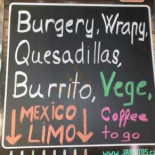 Burgery, Wrapy,
Quesadillas,
Burrito, Vege,
MEXICO Coffee
LIMO to go